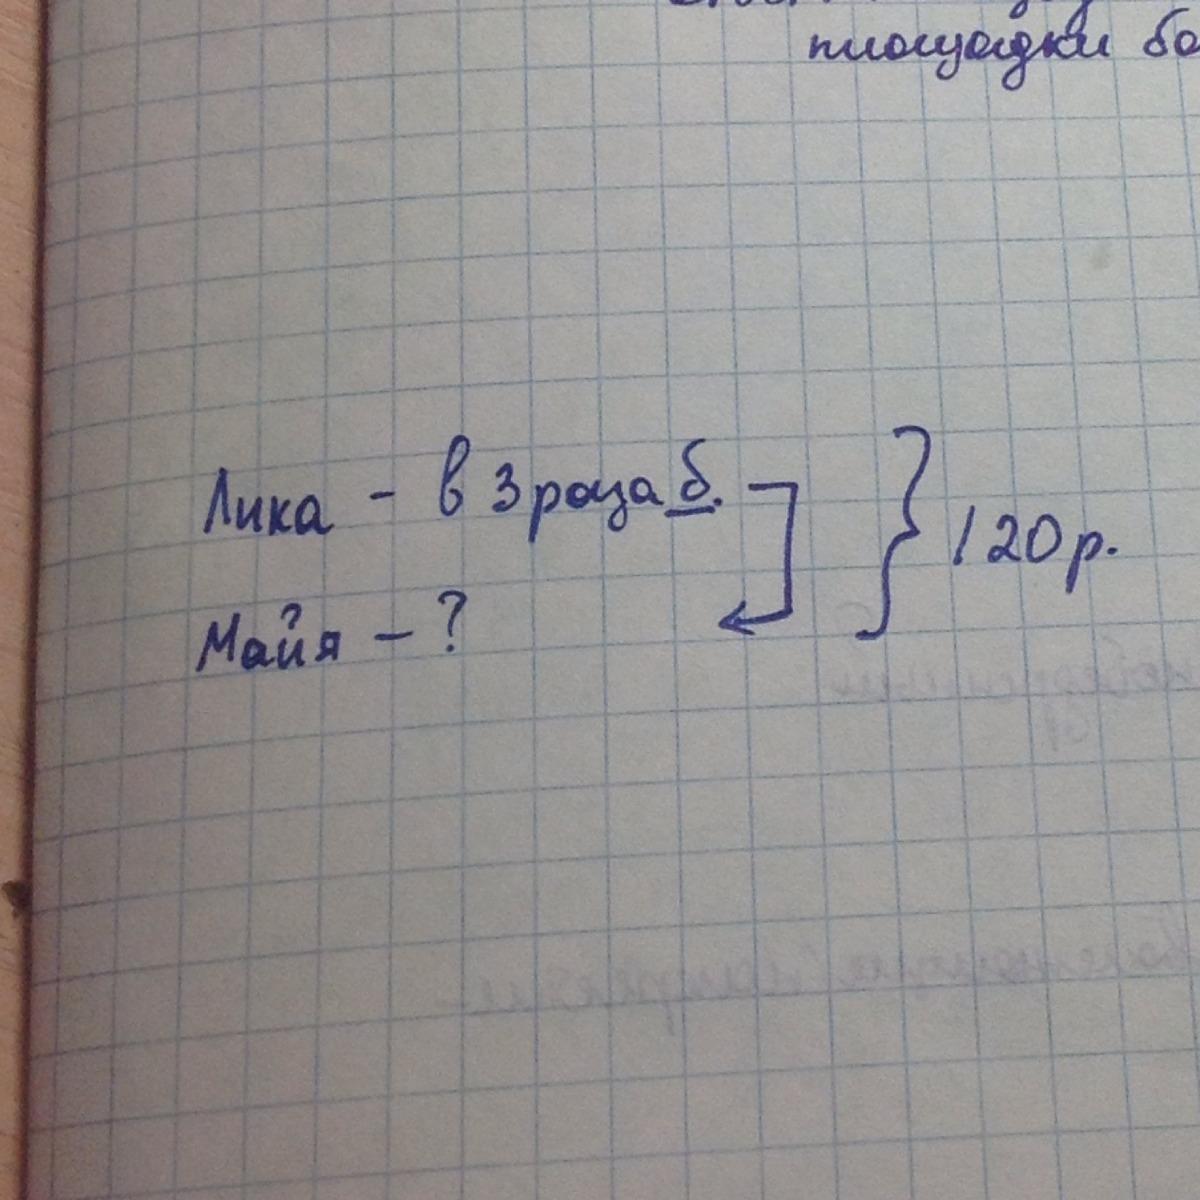 площадки бо
Лика - в 3 раза б.
Майя - ?
120 р.